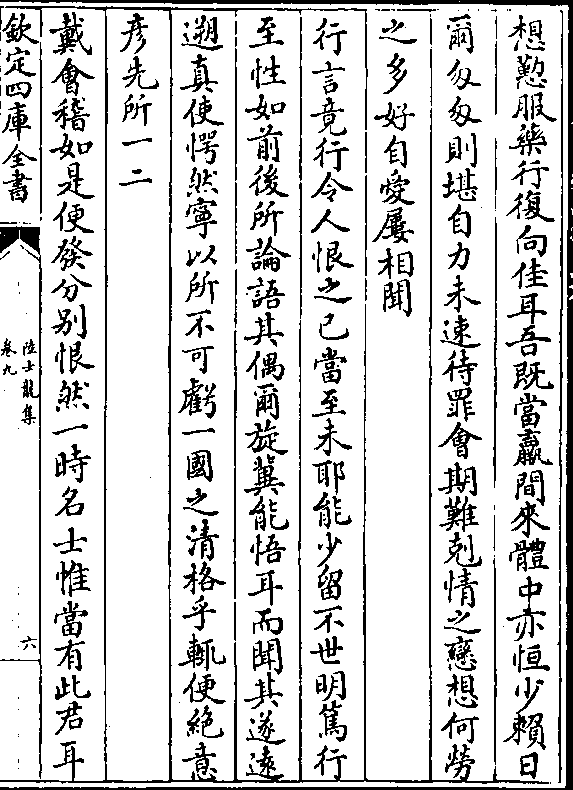 想懃服藥行復向佳耳吾既當羸間來體中亦恒少賴日
爾匆匆則堪自力未速待罪會期難剋情之戀想何勞
之多好自愛屢相聞
行言竟行令人恨之已當至未耶能少留不世明篤行
至性如前後所論語其偶爾旋冀能悟耳而聞其遂遠
遡真使愕然寧以所不可虧一國之清格乎輒便絶意
彦先所一二
戴會稽如是便發分别恨然一時名士惟當有此君耳
欽定四庫全書
陸士龍集
卷九
六